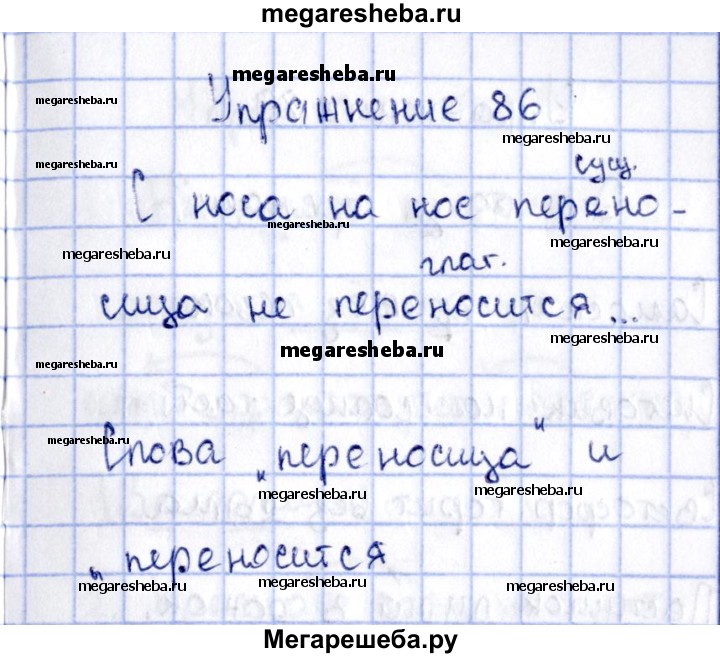 megaresheba.ru
megaresheba.ru
megaresheba.ru
Упражнение 86
megaresheba.ru
megaresheba.ru
сущ.
С носа на нос перено-
megaresheba.ru
megaresheba.ru
megaresheba.ru
глаг.
сица не переносится...
megaresheba.ru
megaresheba.ru
megaresheba.ru
Слова „переносица" и
megaresheba.ru
megaresheba.ru
„переносится
megaresheba.ru
megaresheba.ru
megaresheba.ru
Мегарешеба.ру